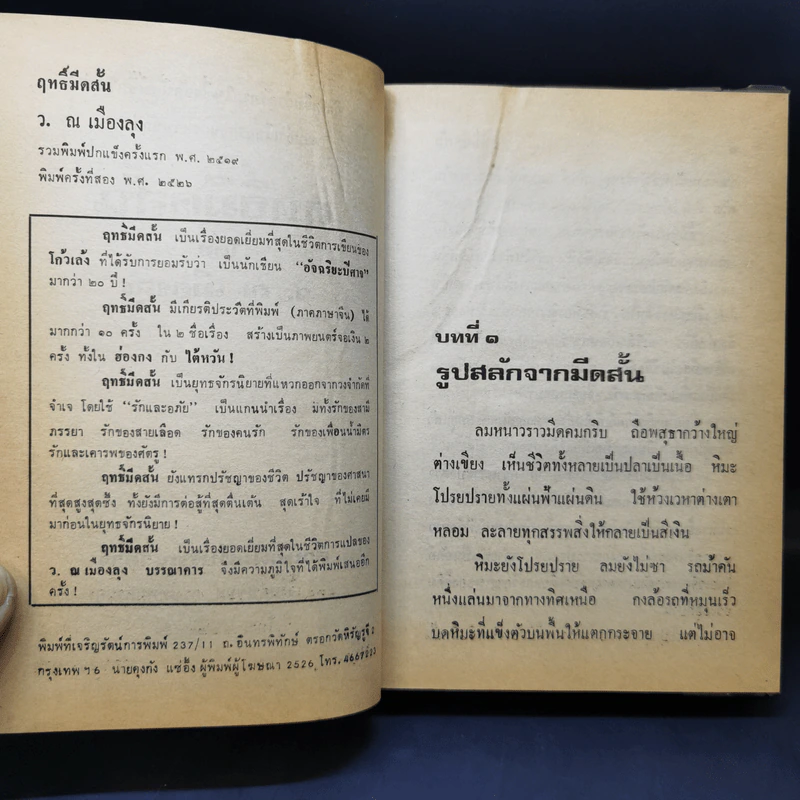 ฤทธิ์มีดสั้น
ว. ณ เมืองลุง
รวมพิมพ์ปกแข็งครั้งแรก พ.ศ. ๒๕๑๙
พิมพ์ครั้งที่สอง พ.ศ. ๒๕๒๖
ฤทธิ์มีดสั้น เป็นเรื่องยอดเยี่ยมที่สุดในชีวิตการเขียนของ
โก้วเล้ง ที่ได้รับการยอมรับว่า เป็นนักเขียน "อัจฉริยะปีศาจ"
มากว่า ๒๐ ปี !
ฤทธิ์มีดสั้น มีเกียรติประวัติที่พิมพ์ (ภาคภาษาจีน) ใช้
มากกว่า ๑๐ ครั้ง ใน ๒ ชื่อเรื่อง สร้างเป็นภาพยนตร์จอเงิน ๒
ครั้ง ทั้งใน ฮ่องกง กับ ไต้หวัน !
ฤทธิ์มีดสั้น เป็นยุทธจักรนิยายที่แหวกออกจากวงจำกัดที่
จำเจ โดยใช้ "รักและอภัย" เป็นแกนนำเรื่อง มีทั้งรักของสามี
ภรรยา รักของสายเลือด รักของคนรัก รักของเพื่อนน้ำมิตร
รักและเคารพของศัตรู !
ฤทธิ์มีดสั้น ยังแทรกปรัชญาของชีวิต ปรัชญาของศาสนา
ที่สุดสูงสุดซึ้ง ทั้งยังมีการต่อสู้ที่สุดตื่นเต้น สุดเร้าใจ ที่ไม่เคยมี
มาก่อนในยุทธจักรนิยาย !
ฤทธิ์มีดสั้น เป็นเรื่องยอดเยี่ยมที่สุดในชีวิตการแปลของ
ว. ณ เมืองลุง บรรณาคาร จึงมีความภูมิใจที่ได้พิมพ์เสนออีก
ครั้ง !
พิมพ์ที่เจริญรัตน์การพิมพ์ 237/11 ถ.อินทรพิทักษ์ ตรอกวัดหิรัญรูจี
กรุงเทพฯ 6 นายคุงกัง แซ่อึ้ง ผู้พิมพ์ผู้โฆษณา 2526 โทร.
บทที่ ๑
รูปสลักจากมีดสั้น
ลมหนาวราวมีดคมกริบ ถือพสุธากว้างใหญ่
ต่างเขียง เห็นชีวิตทั้งหลายเป็นปลาเป็นเนื้อ หิมะ
โปรยปรายทั้งแผ่นฟ้าแผ่นดิน ใช้ห้วงเวหาต่างเตา
หลอม ละลายทุกสรรพสิ่งให้กลายเป็นสีเงิน
หิมะยังโปรยปราย ลมยังไม่ซา รถม้าคัน
หนึ่งแล่นมาจากทางทิศเหนือ กงล้อรถที่หมุนเร็ว
บดหิมะที่แข็งตัวบนพื้นให้แตกกระจาย แต่ไม่อาจ